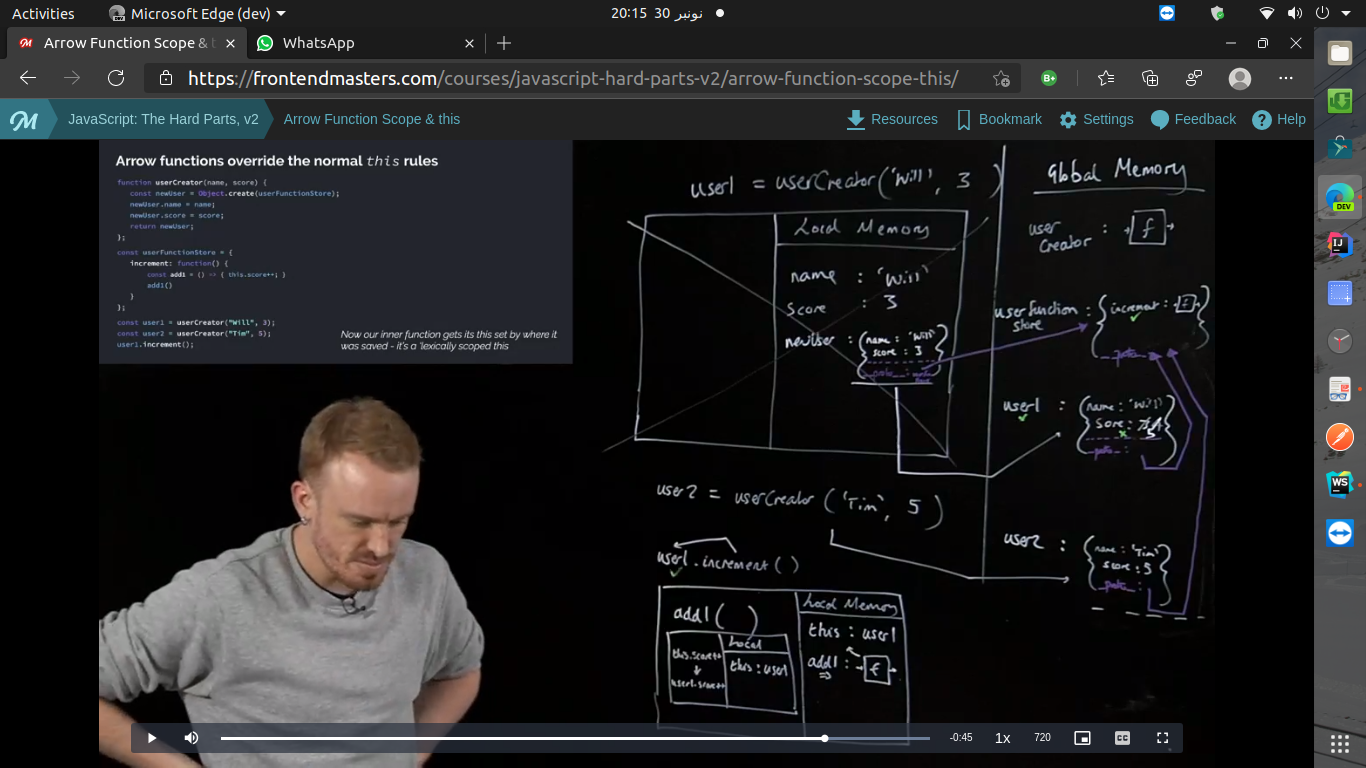 Activities
Microsoft Edge (dev)
20:15 30 نونبر
Arrow Function Scope & t
WhatsApp
https://frontendmasters.com/courses/javascript-hard-parts-v2/arrow-function-scope-this/
B+
DEV
M
JavaScript: The Hard Parts, v2
Arrow Function Scope & this
Resources
Bookmark
Settings
Feedback
Help
Arrow functions override the normal this rules
function userCreator(name, score) {
const newUser = Object.create(userFunctionStore);
newUser.name = name;
newUser.score = score;
return newUser;
};
const userFunctionStore = {
increment: function() {
const add1 = () => { this.score++; }
add1()
}
};
const user1 = userCreator("Will", 3);
const user2 = userCreator("Tim", 5);
user1.increment();
Now our inner function gets its this set by where it
was saved - it's a 'lexically scoped this
user1 = userCreator('Will', 3 )
Local Memory
name : 'Will'
score : 3
newUser : {name : 'Will'
score : 3
user2 = userCreator ('Tim', 5 )
user1.increment()
add1( )
Local
this.score++
user1.score++
this : user1
Local Memory
this : user1
add1 : f
Global Memory
user
Creator : f
userfunction
store : {increment : f }
__proto__
user1 : {name : 'Will'
user2 : {name : 'Tim'
score : 5
-0:45
1x
720
CC
IJ
WS